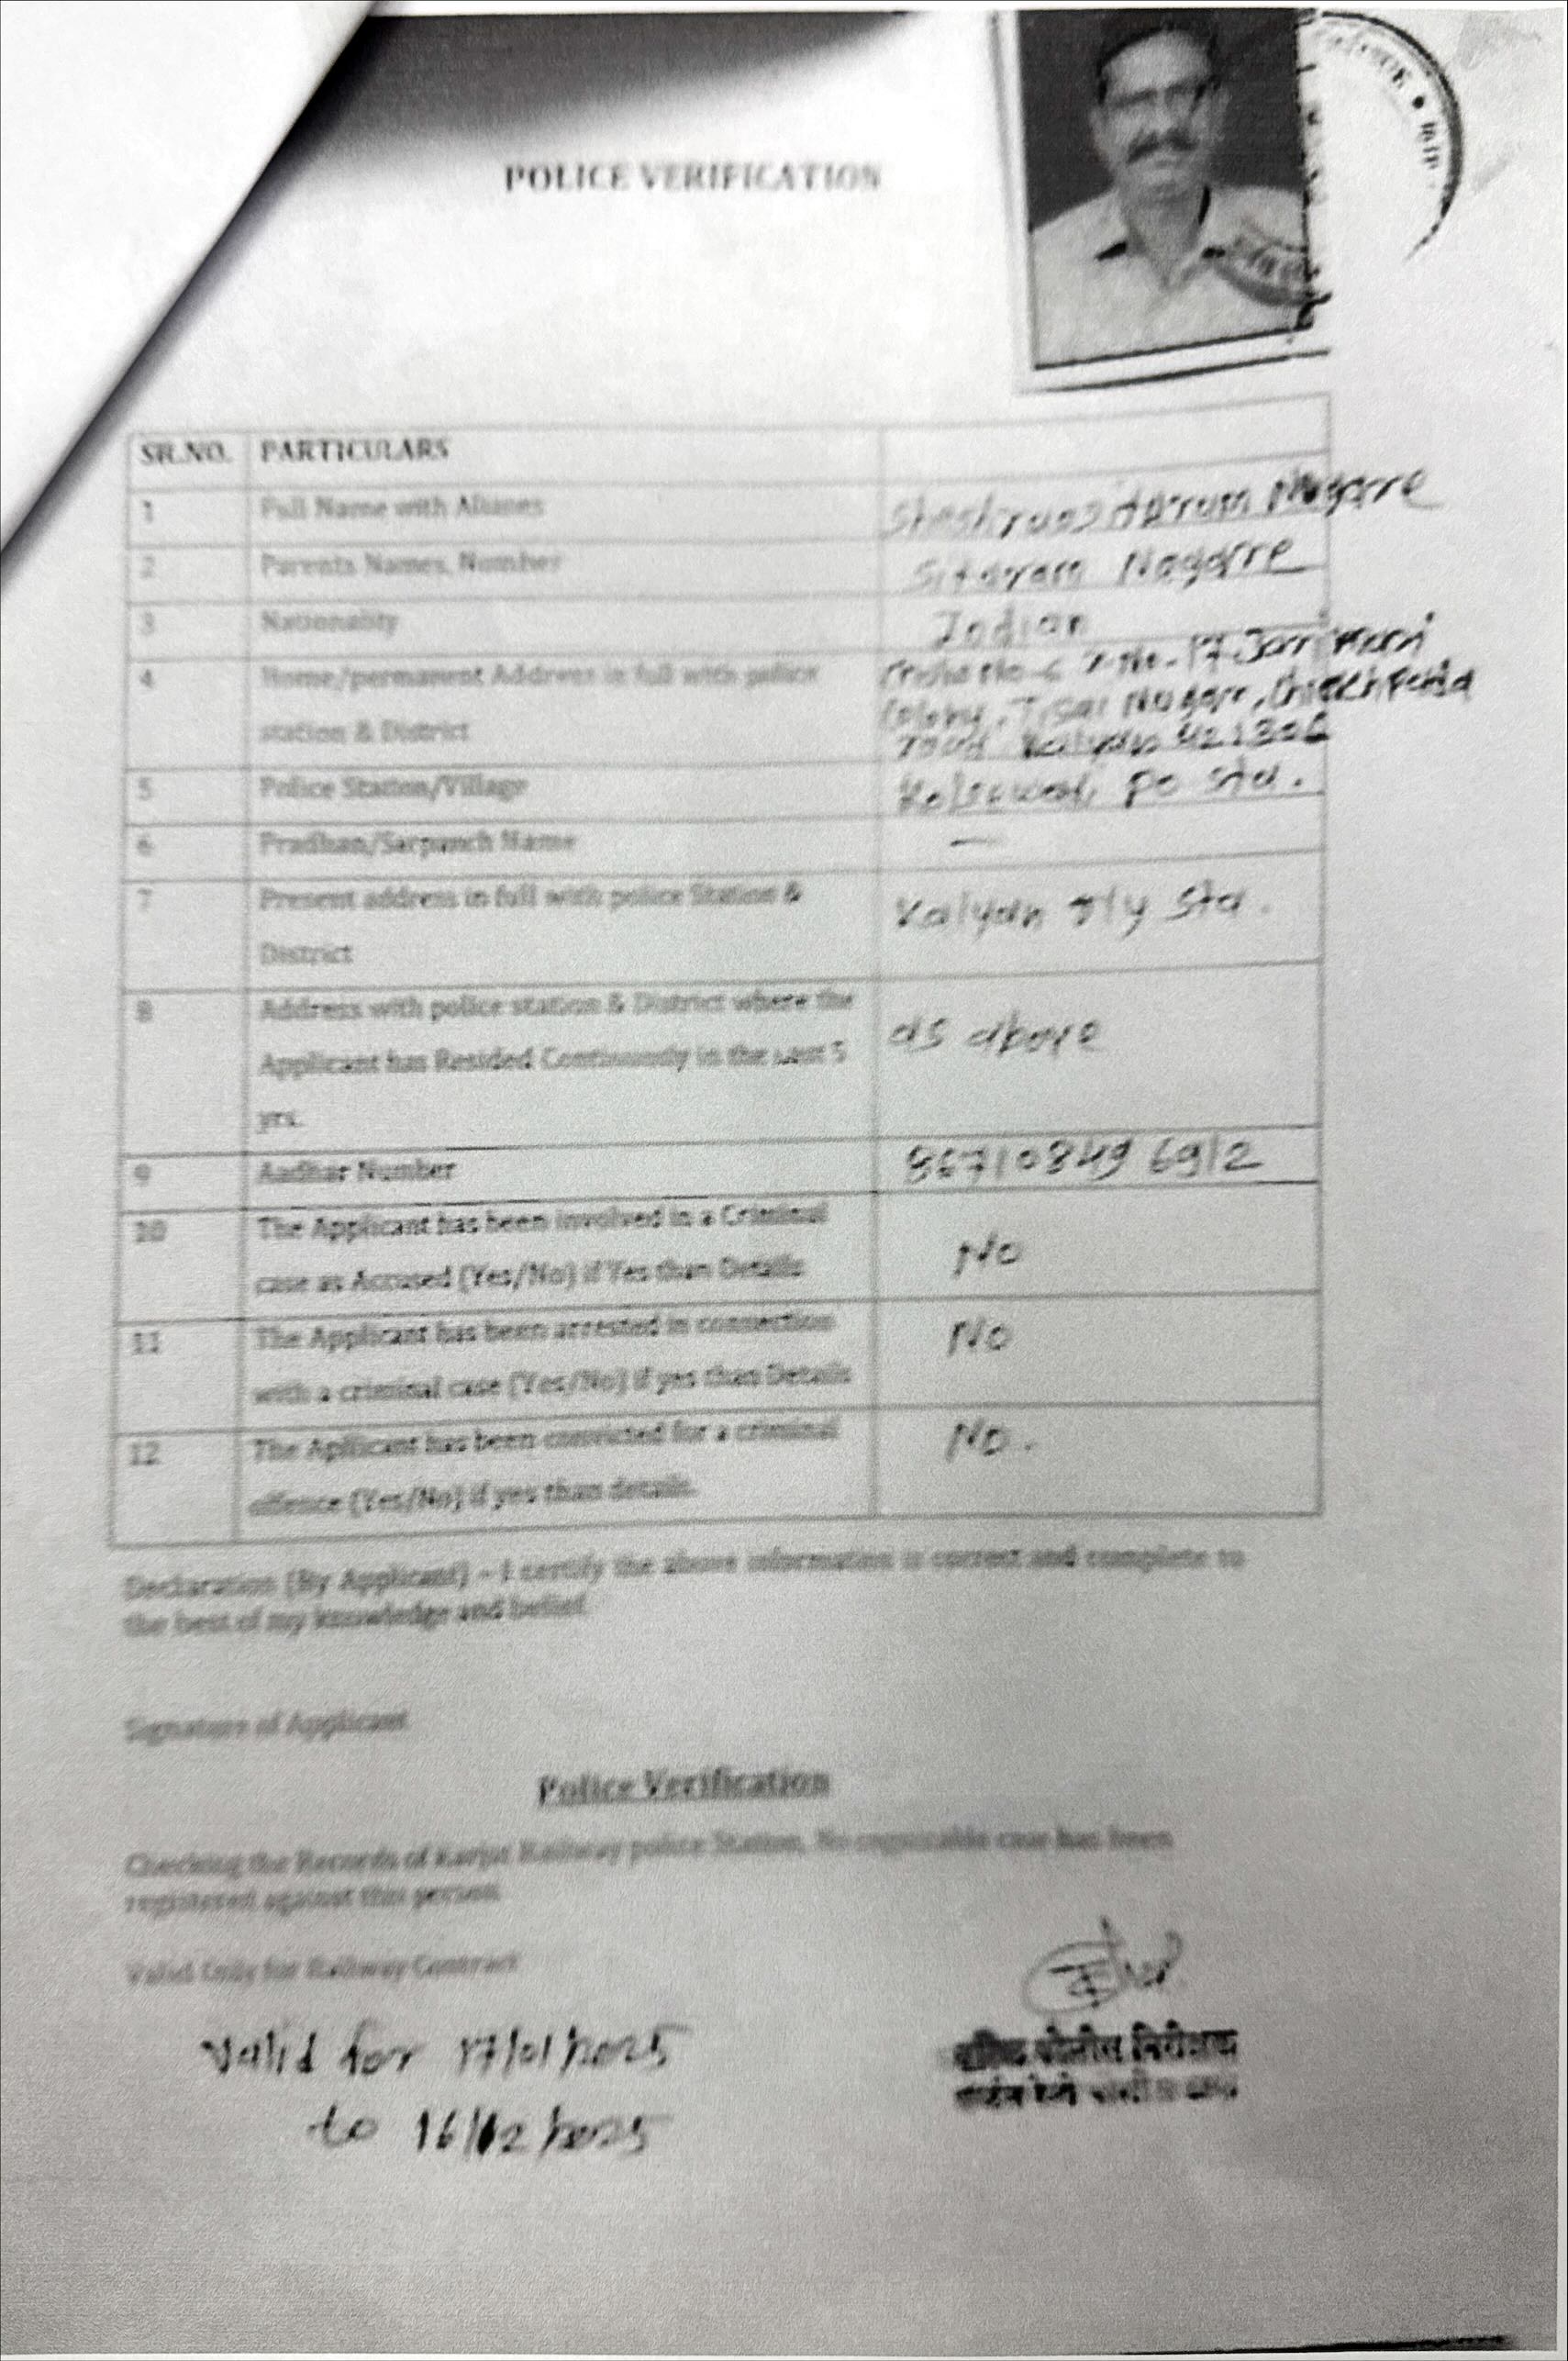 POLICE VERIFICATION
SR.NO. PARTICULARS
1 Full Name with Aliases Nagarre
2 Parents Names, Number Sitaram Nagarre
3 Nationality Indian
4 Home/permanent Address in full with police
station & District
Colony, Tisai Nagar,
road Kalyan 421306
5 Police Station/Village po sta.
6 Pradhan/Sarpanch Name —
7 Present address in full with police Station &
District
Kalyan rly sta.
8 Address with police station & District where the
Applicant has Resided Continuosly in the Last 5
yrs.
as above
9 Aadhar Number
10 The Applicant has been involved in a Criminal
case as Accused (Yes/No) if Yes than Details
No
11 The Applicant has been arrested in connection
with a criminal case (Yes/No) if yes than Details
No
12 The Apllicant has been convicted for a criminal
offence (Yes/No) if yes than details.
No.
Declaration (By Applicant) – I certify the above information is correct and complete to
the best of my knowledge and belief.
Signature of Applicant
Police Verification
Checking the Records of Karjat Railway police Station, No cognizable case has been
registered against this person.
Valid Only for Railway Contract
Valid for 17/01/2025
to 16/02/2025
पोलीस निरीक्षक